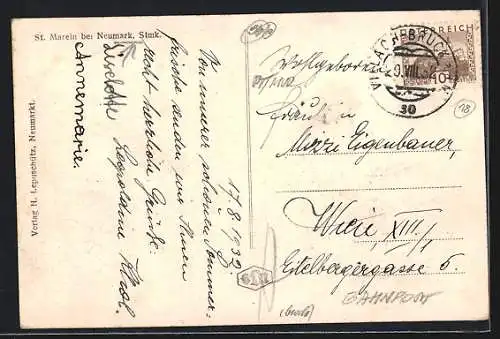 St. Marein bei Neumark, Stmk.
Verlag H. Lepuschütz, Neumarkt.
17.8.1932
Von unserer schönen Sommer-
frische senden wir Ihnen
recht herzliche Grüße.
Leopoldine
Liselotte
Annemarie.
Wohlgeboren
Fräulein
Mizzi Eigenbauer,
Wien, XIII./
Eitelbergergasse 5.
BAHNPOST
ÖSTERREICH
10
VILLACH-BRUCK
30
18